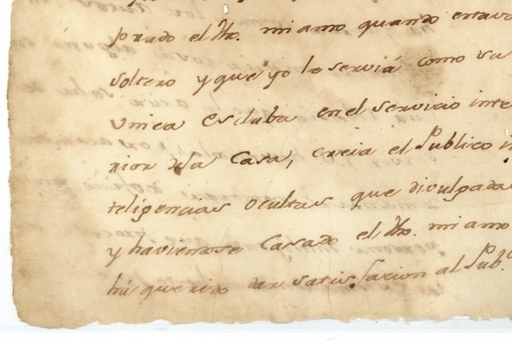 prado el dho. mi amo quando estava
soltero y que yo le serviá como su
unica Esclaba en el servicio inte
rior de la Casa, creia el Publico in
teligencias ocultas que divulgadas
y haviendose Casado el dho. mi amo
quiso dar satisfacion al Pub.co